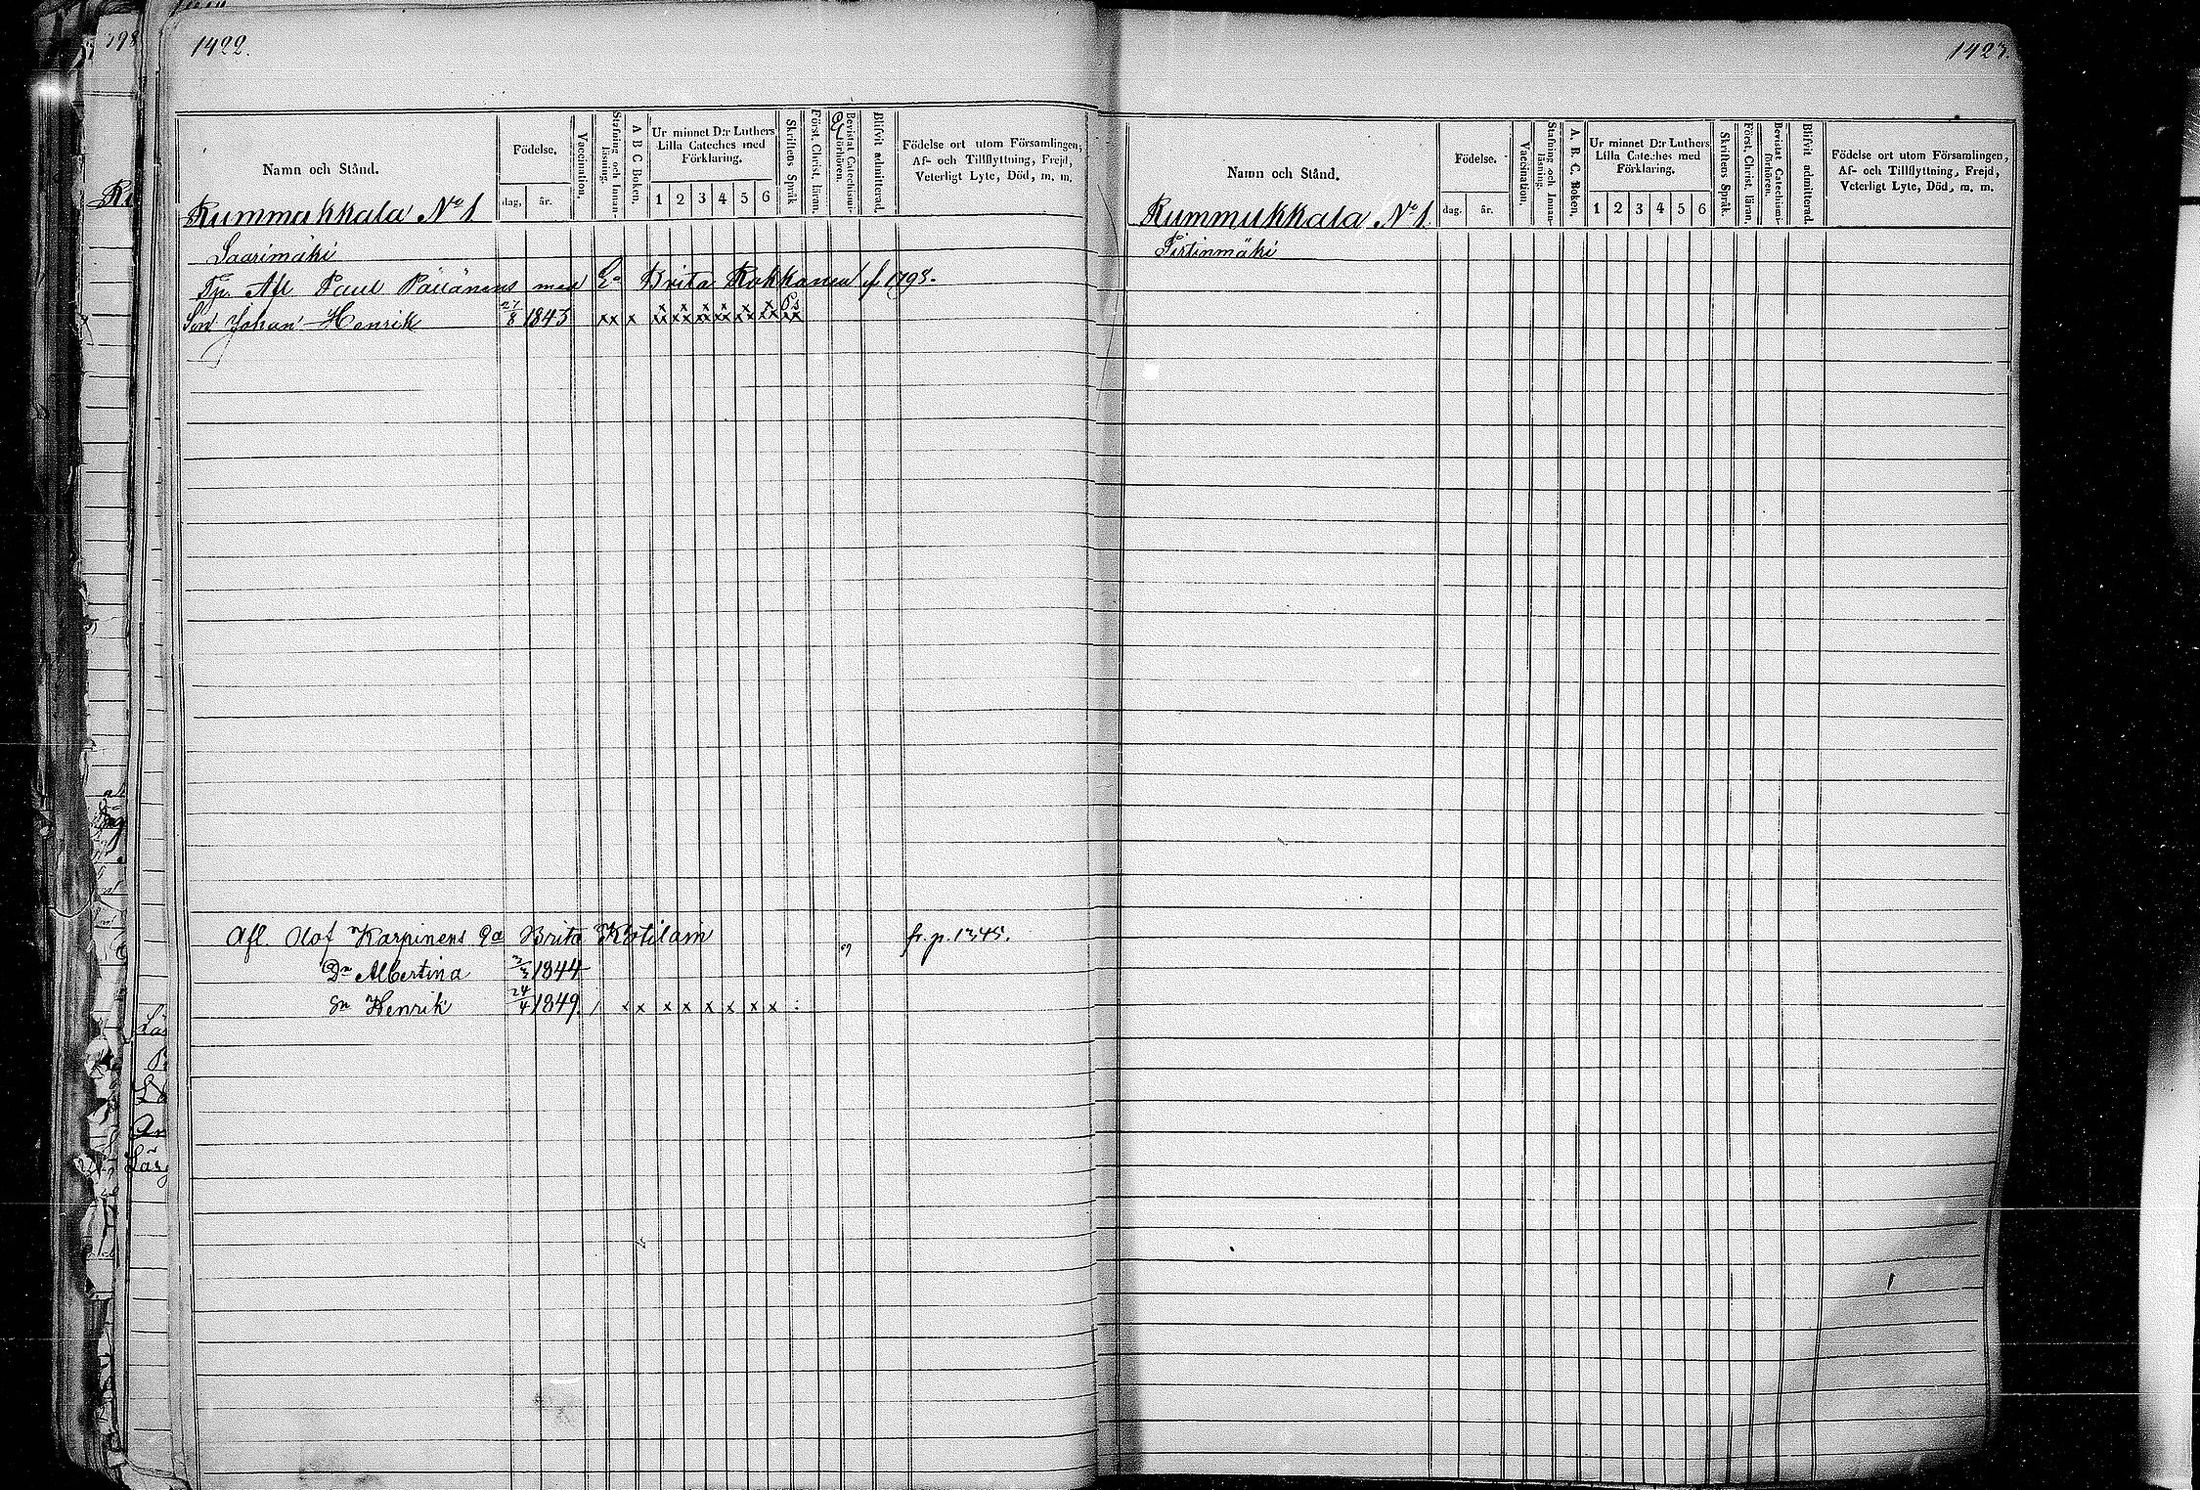 1422.
Namn och Stånd.
Födelse.
dag,
år.
Vaccination.
Stafning och Innan-läsning.
A B C Boken,
Ur minnet D:r Luthers
Lilla Cateches med
Förklaring.
1 2 3 4 5 6
Skriftens Språk
Först. Christ. läran.
Bevistat Catechismi-förhören.
Blifvit admitterad.
Födelse ort utom Församlingen,
Af- och Tillflyttning, Frejd,
Veterligt Lyte, Död, m. m.
Rummukkala No 1
Saarimäki
Afl Paul Päiiänens Brita Kokkanen f 1793.
Son Johan Henrik 27/8 1843 xx x
Afl. Olof Karpinens Ea Brita Kotilain fr. p. 1345.
Dr Albertina 3/3 1844
Sn Henrik 24/4 1849. / x x x x x x x x :
1423.
Namn och Stånd.
Födelse.
dag.
år.
Vaccination,
Stafning och Innan-läsning.
A. B. C. Boken,
Ur minnet D:r Luthers
Lilla Cateches med
Förklaring.
1 2 3 4 5 6
Skriftens Språk.
Först. Christ. läran.
Bevistat Catechismi-förhören.
Blifvit admitterad.
Födelse ort utom Församlingen,
Af- och Tillflyttning, Frejd,
Veterligt Lyte, Död, m. m.
Rummukkala No 1.
Pirtinmäki